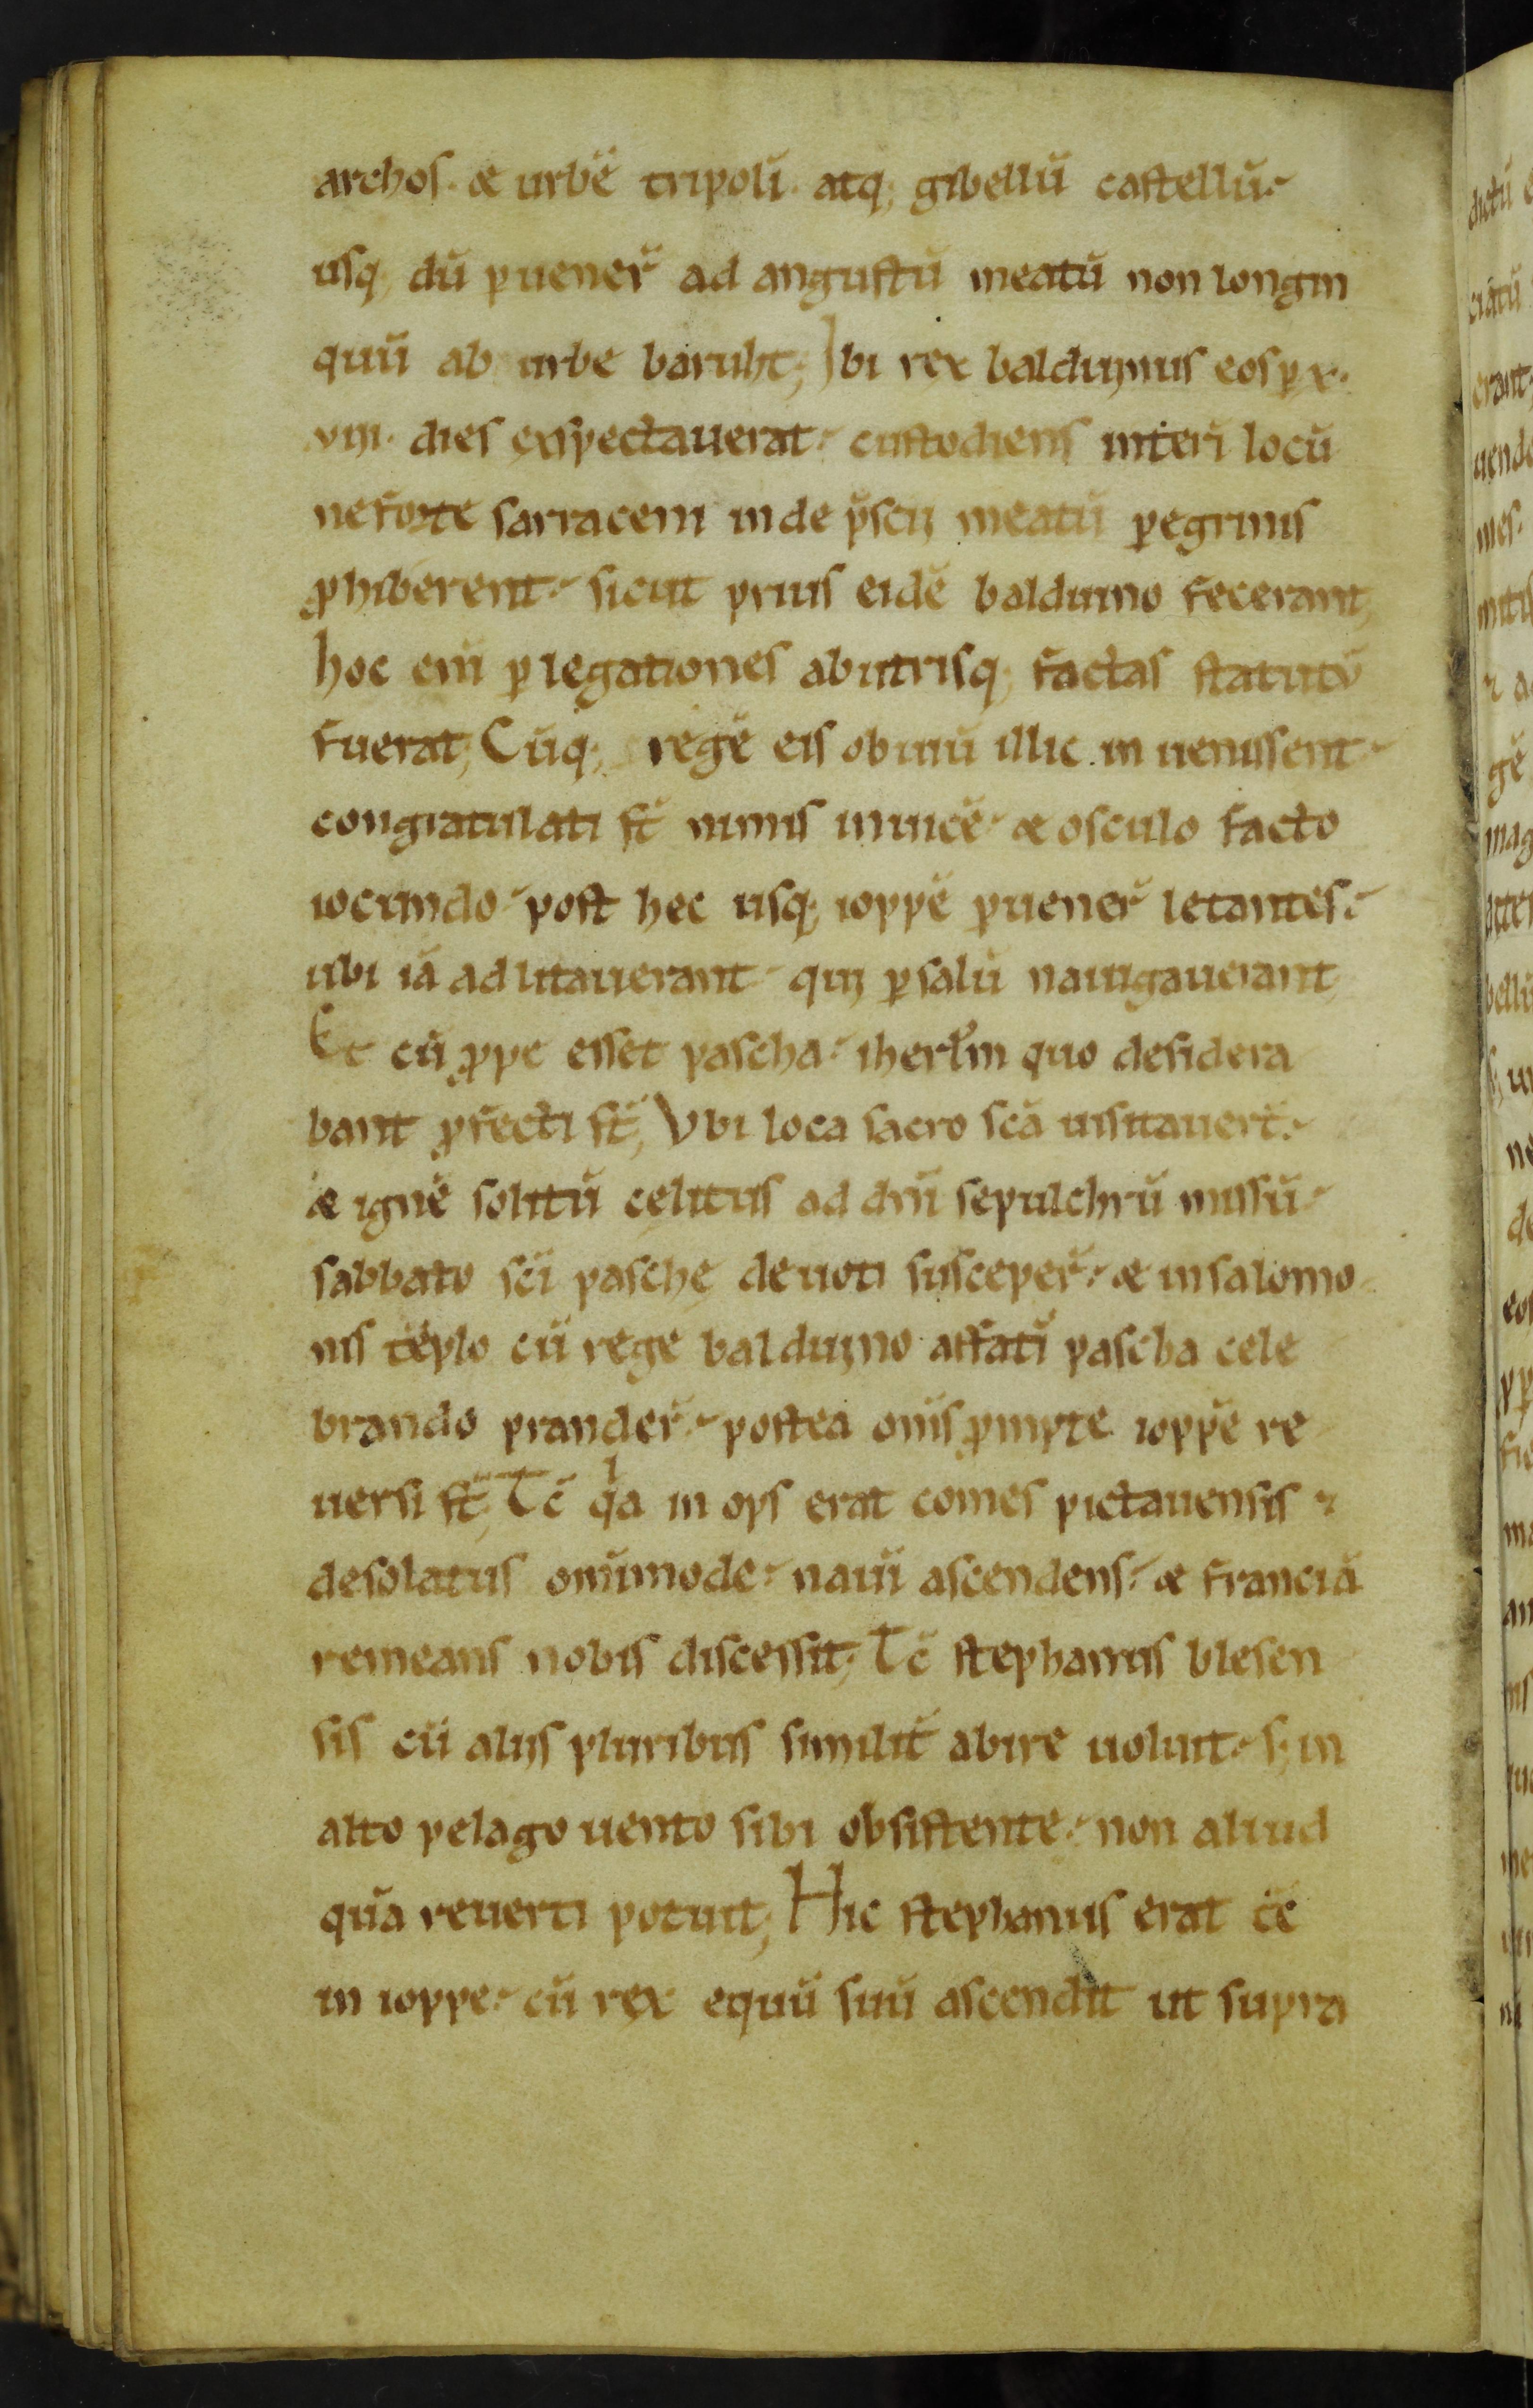 archos. & urbē tripolī. atq; gibellū castellū.
usq; dū ꝑueneř ad angustū meatū non longin
quū ab urbe baruht; Ibi rex balduinus eos ꝑ x.
viii. dies exspectauerat. custodiens interī locū
ne forte sarraceni inde p̄scii meatū ꝑegrinis
ꝓhiberent. sicut prius eidē balduino fecerant;
hoc eni̅ ꝑ legationes ab utrisq; factas statutū
fuerat; Cūq; regē eis obuiū illic inuenissent
congratulati st̅ nimis inuicē. & osculo facto
iocundo. post hec usq; ioppē ꝑueneř letantes.
ubi iā adlitauerant qui ꝑ salū nauigauerant
Et cū ꝓpe esset pascha. iherl̅m quo desidera
bant ꝓfecti st̅; Vbi loca sacro scā uisitauert̅.
& ignē solitū cęlitus ad dn̅i sepulchrū missū.
sabbato sc̅i paschę deuoti susceper̅. & in salomo
nis tēplo cū rege balduino affatī pascha cele
brando prander̅. postea om̅is ꝓmpte ioppē re
uersi st̅; Tc̅ qͥa inops erat comes pictauensis &
desolatus om̅imode. nauī ascendens. & franciā
remeans nobis discessit; Tc̅ stephanus blesen
sis cū aliis pluribus similit̅ abire uoluit. s; in
alto pelago uento sibi obsistente. non aliud
quā reuerti potuit; Hic stephanus erat tc̅
in ioppe. cū rex equū suū ascendit ut supra